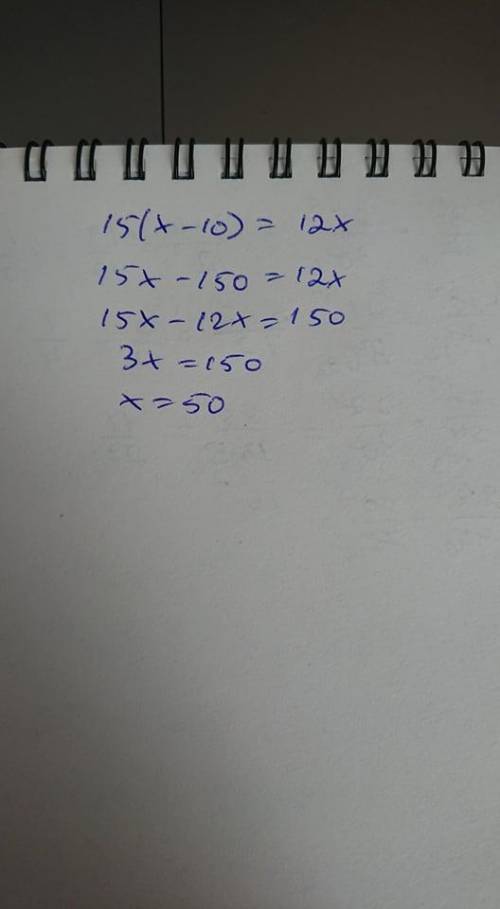 15(x-10) = 12x
15x - 150 = 12x
15x - 12x = 150
3x = 150
x = 50